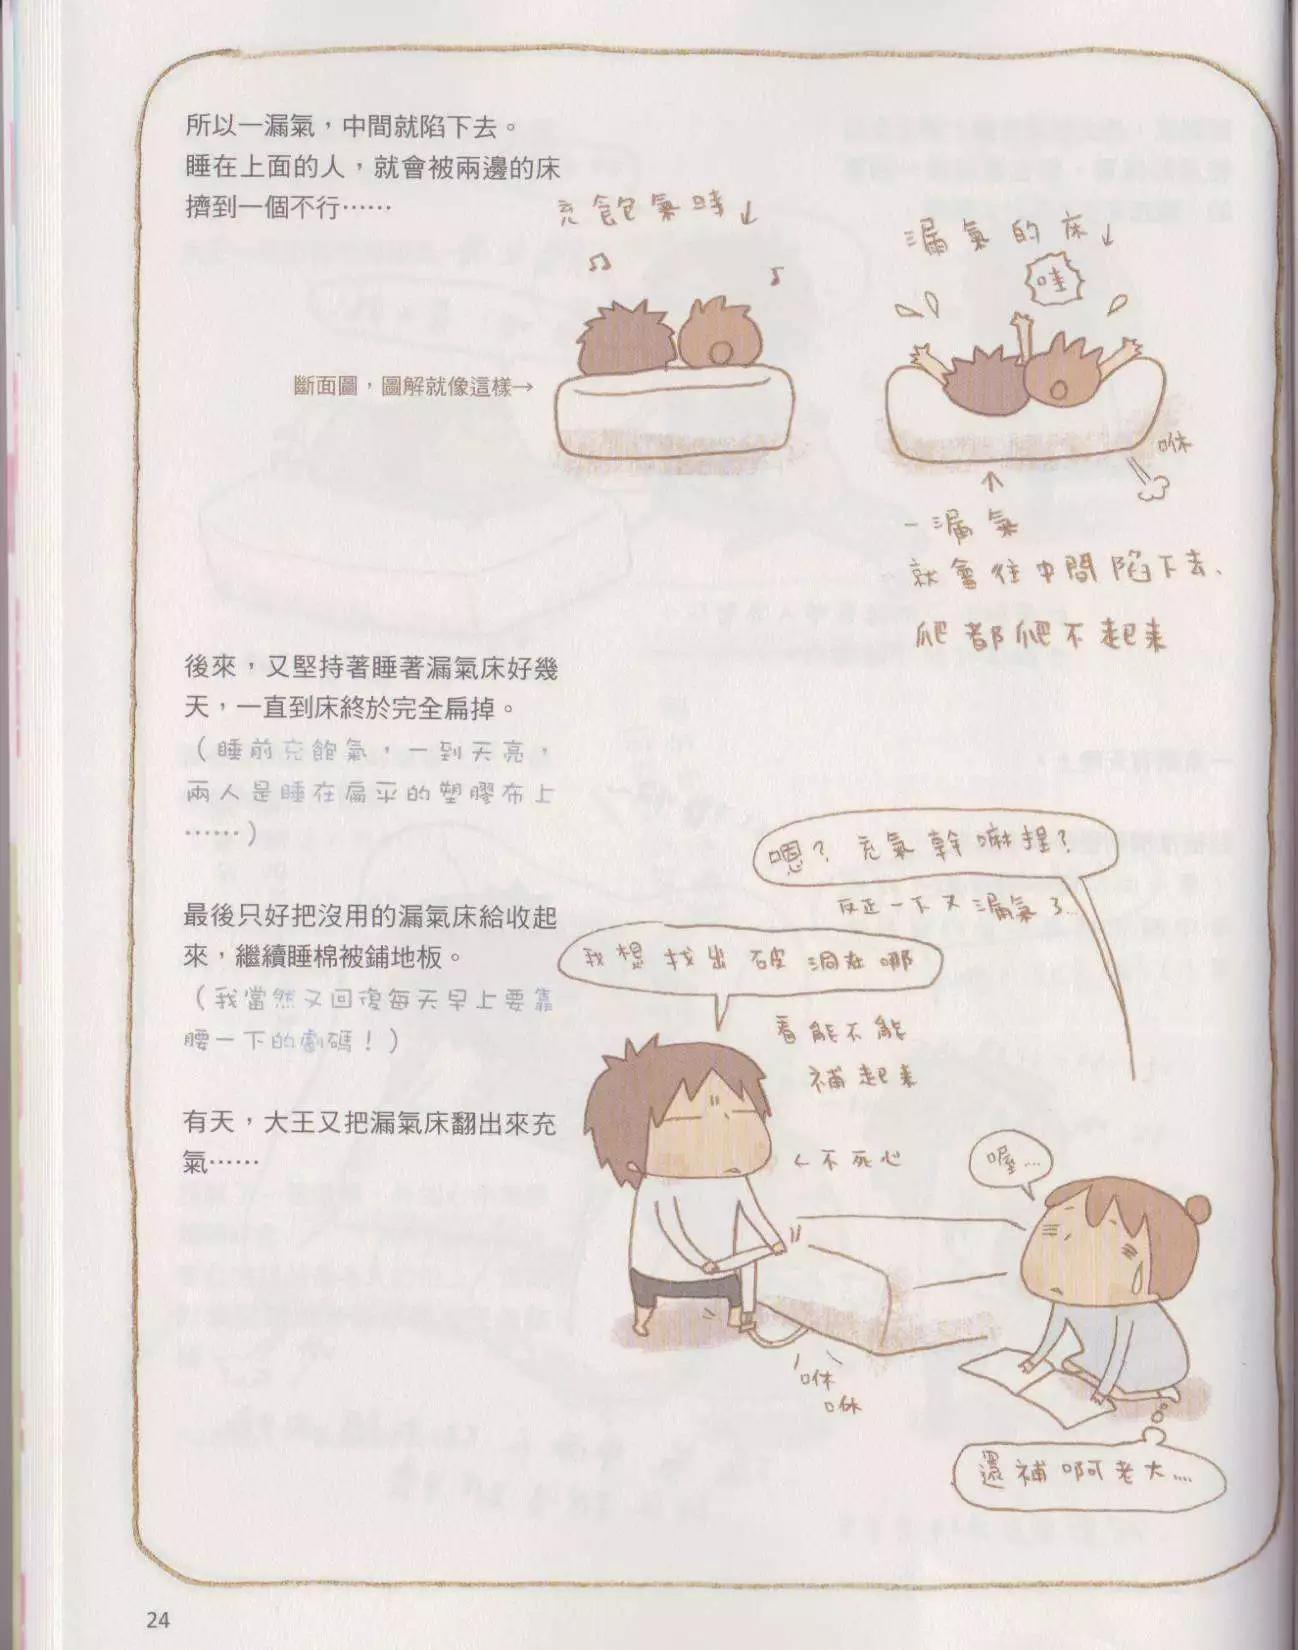 所以一漏氣，中間就陷下去。
睡在上面的人，就會被兩邊的床
擠到一個不行⋯⋯
充飽氣時↓
漏氣的床↓
哇
斷面圖，圖解就像這樣→
咻
↑
一漏氣
就會往中間陷下去、
爬都爬不起來
後來，又堅持著睡著漏氣床好幾
天，一直到床終於完全扁掉。
（睡前充飽氣，一到天亮，
兩人是睡在扁平的塑膠布上
⋯⋯）
嗯？充氣幹嘛捏？
反正一下又漏氣了...
最後只好把沒用的漏氣床給收起
來，繼續睡棉被鋪地板。
（我當然又回復每天早上要靠
腰一下的戲碼！）
我想找出破洞在哪
看能不能
補起來
←不死心
有天，大王又把漏氣床翻出來充
氣⋯⋯
喔...
咻
咻
還補啊老大....
24